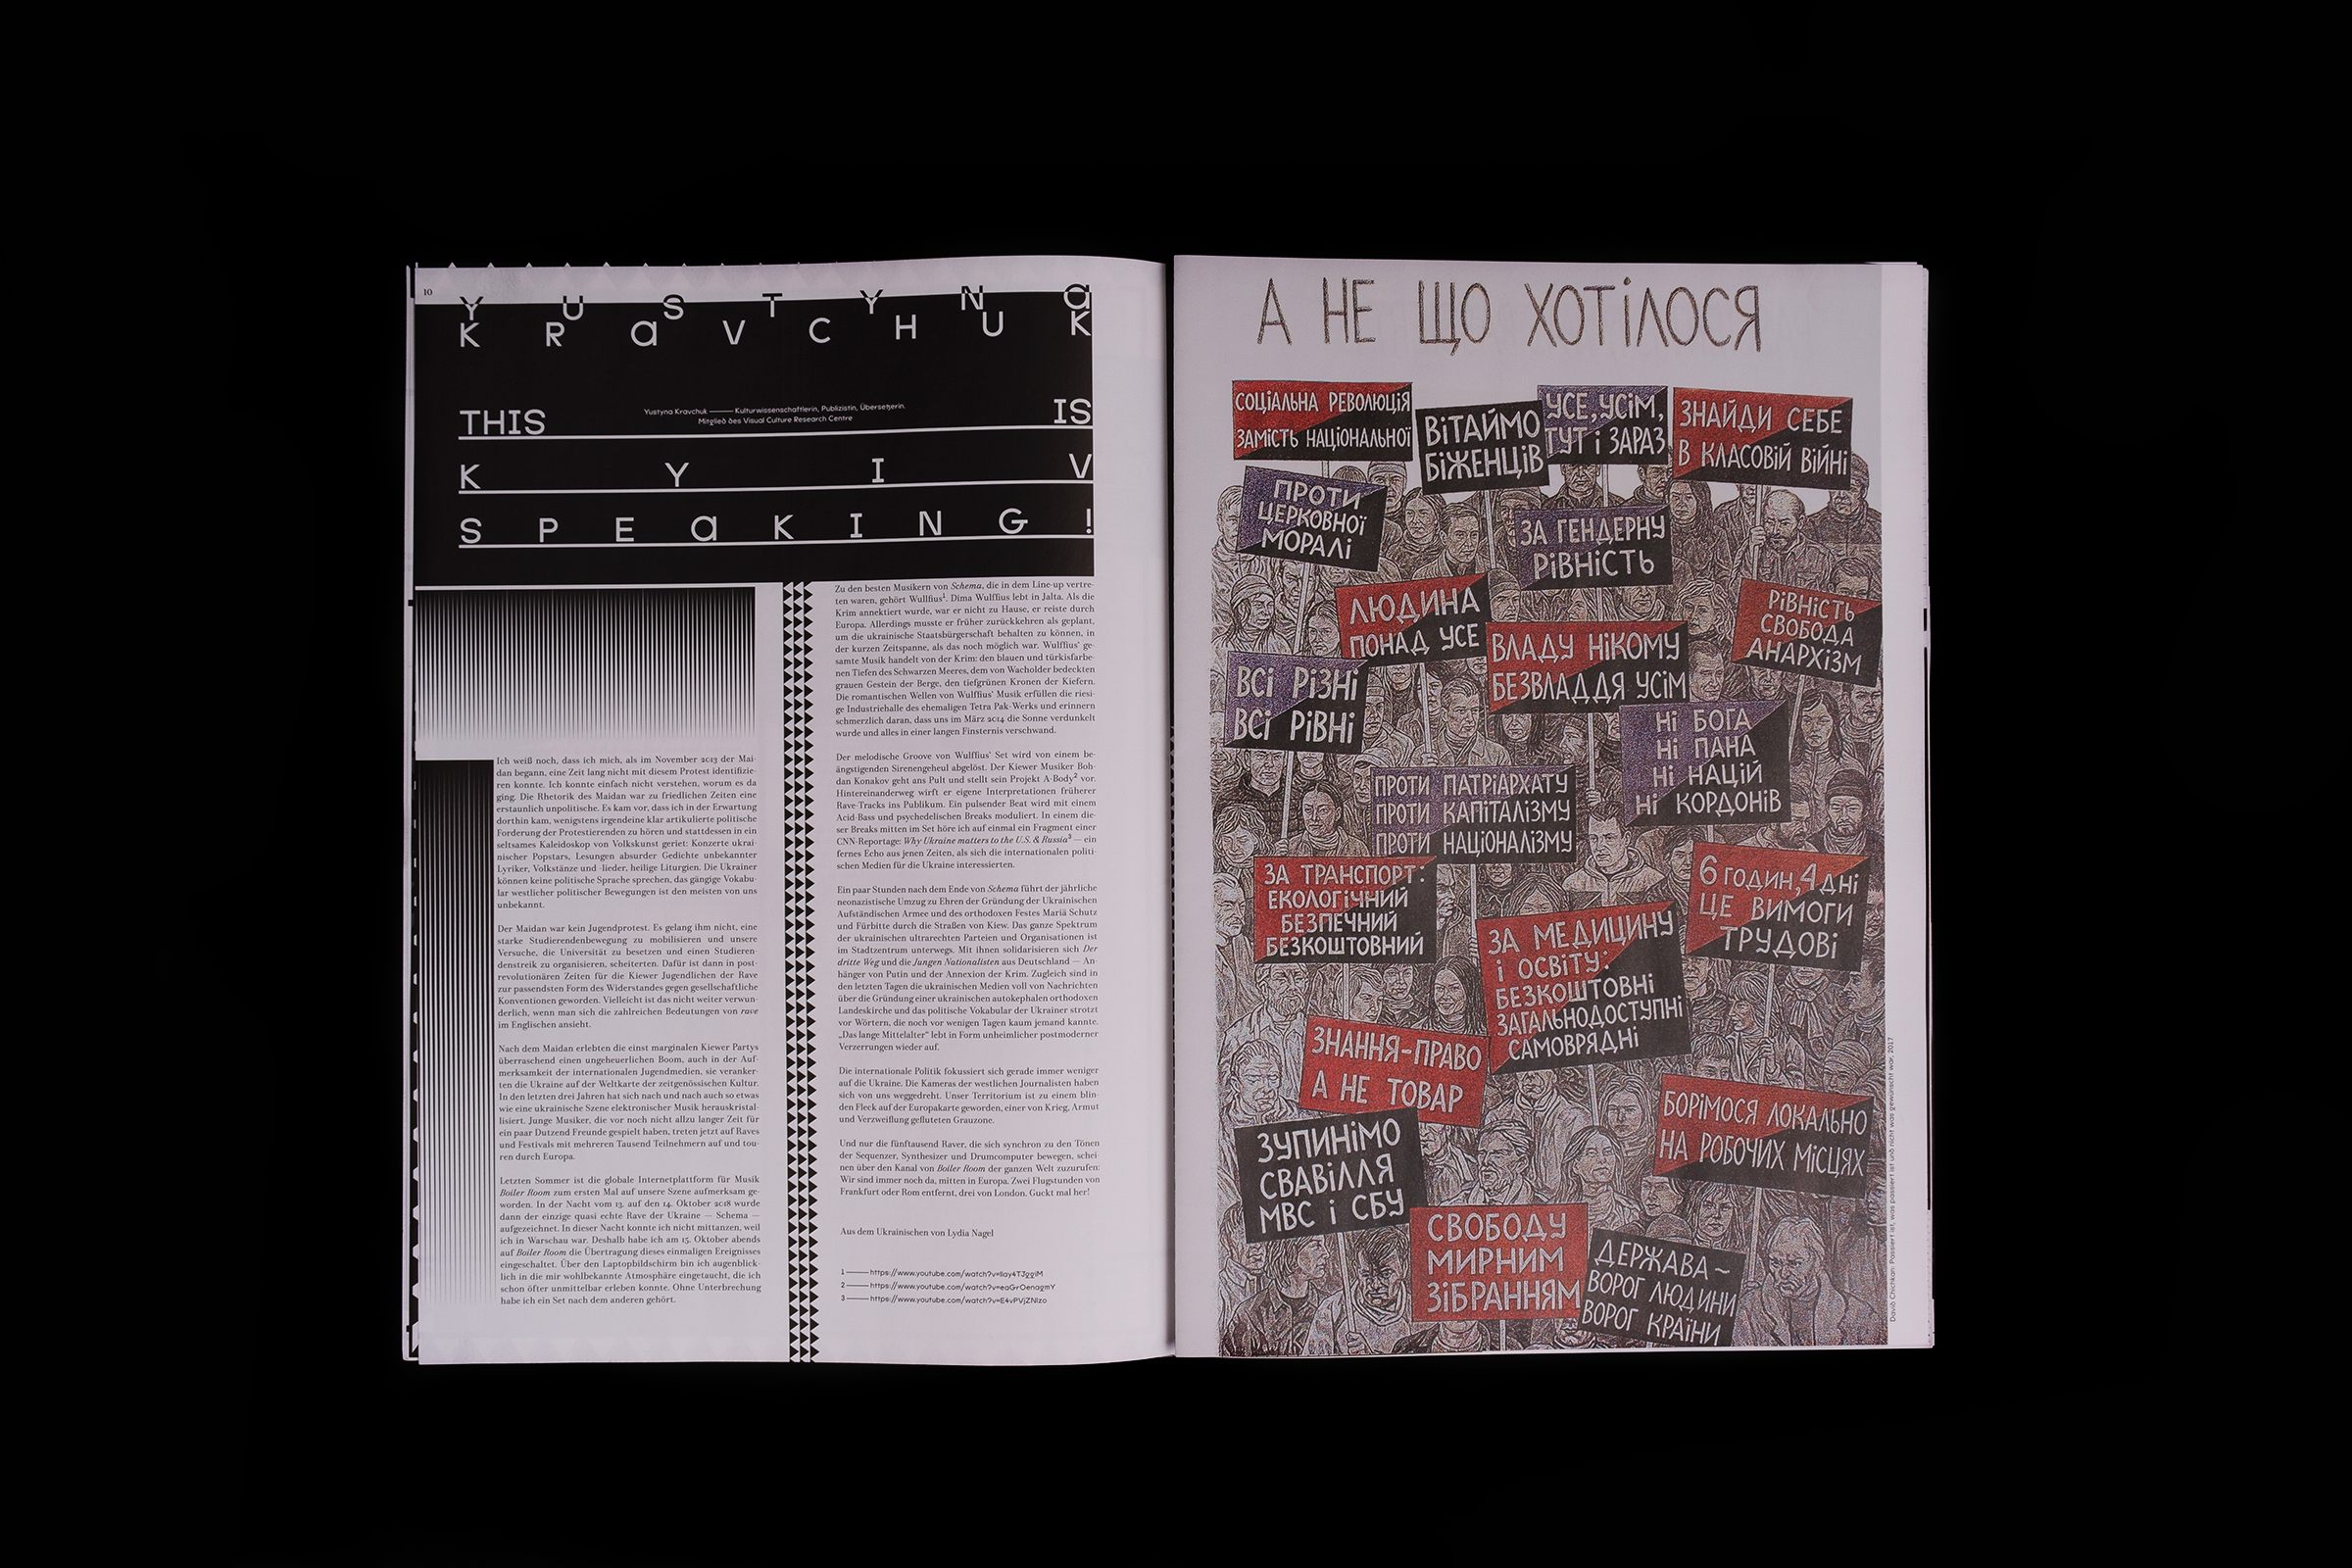 10
YUSTYNa
KRaVCHUK
THIS IS
KYIV
SPEaKING!
Yustyna Kravchuk —— Kulturwissenschaftlerin, Publizistin, Übersetzerin.
Mitglied des Visual Culture Research Centre
Ich weiß noch, dass ich mich, als im November 2013 der Mai-
dan begann, eine Zeit lang nicht mit diesem Protest identifizie-
ren konnte. Ich konnte einfach nicht verstehen, worum es da
ging. Die Rhetorik des Maidan war zu friedlichen Zeiten eine
erstaunlich unpolitische. Es kam vor, dass ich in der Erwartung
dorthin kam, wenigstens irgendeine klar artikulierte politische
Forderung der Protestierenden zu hören und stattdessen in ein
seltsames Kaleidoskop von Volkskunst geriet: Konzerte ukrai-
nischer Popstars, Lesungen absurder Gedichte unbekannter
Lyriker, Volkstänze und -lieder, heilige Liturgien. Die Ukrainer
können keine politische Sprache sprechen, das gängige Vokabu-
lar westlicher politischer Bewegungen ist den meisten von uns
unbekannt.
Der Maidan war kein Jugendprotest. Es gelang ihm nicht, eine
starke Studierendenbewegung zu mobilisieren und unsere
Versuche, die Universität zu besetzen und einen Studieren-
denstreik zu organisieren, scheiterten. Dafür ist dann in post-
revolutionären Zeiten für die Kiewer Jugendlichen der Rave
zur passendsten Form des Widerstandes gegen gesellschaftliche
Konventionen geworden. Vielleicht ist das nicht weiter verwun-
derlich, wenn man sich die zahlreichen Bedeutungen von rave
im Englischen ansieht.
Nach dem Maidan erlebten die einst marginalen Kiewer Partys
überraschend einen ungeheuerlichen Boom, auch in der Auf-
merksamkeit der internationalen Jugendmedien, sie veranker-
ten die Ukraine auf der Weltkarte der zeitgenössischen Kultur.
In den letzten drei Jahren hat sich nach und nach auch so etwas
wie eine ukrainische Szene elektronischer Musik herauskristal-
lisiert. Junge Musiker, die vor noch nicht allzu langer Zeit für
ein paar Dutzend Freunde gespielt haben, treten jetzt auf Raves
und Festivals mit mehreren Tausend Teilnehmern auf und tou-
ren durch Europa.
Letzten Sommer ist die globale Internetplattform für Musik
Boiler Room zum ersten Mal auf unsere Szene aufmerksam ge-
worden. In der Nacht vom 13. auf den 14. Oktober 2018 wurde
dann der einzige quasi echte Rave der Ukraine — Schema —
aufgezeichnet. In dieser Nacht konnte ich nicht mittanzen, weil
ich in Warschau war. Deshalb habe ich am 15. Oktober abends
auf Boiler Room die Übertragung dieses einmaligen Ereignisses
eingeschaltet. Über den Laptopbildschirm bin ich augenblick-
lich in die mir wohlbekannte Atmosphäre eingetaucht, die ich
schon öfter unmittelbar erleben konnte. Ohne Unterbrechung
habe ich ein Set nach dem anderen gehört.
Zu den besten Musikern von Schema, die in dem Line-up vertre-
ten waren, gehört Wulffius¹. Dima Wulffius lebt in Jalta. Als die
Krim annektiert wurde, war er nicht zu Hause, er reiste durch
Europa. Allerdings musste er früher zurückkehren als geplant,
um die ukrainische Staatsbürgerschaft behalten zu können, in
der kurzen Zeitspanne, als das noch möglich war. Wulffius' ge-
samte Musik handelt von der Krim: den blauen und türkisfarbe-
nen Tiefen des Schwarzen Meeres, dem von Wacholder bedeckten
grauen Gestein der Berge, den tiefgrünen Kronen der Kiefern.
Die romantischen Wellen von Wulffius' Musik erfüllen die riesi-
ge Industriehalle des ehemaligen Tetra Pak-Werks und erinnern
schmerzlich daran, dass uns im März 2014 die Sonne verdunkelt
wurde und alles in einer langen Finsternis verschwand.
Der melodische Groove von Wulffius' Set wird von einem be-
ängstigenden Sirenengeheul abgelöst. Der Kiewer Musiker Boh-
dan Konakov geht ans Pult und stellt sein Projekt A-Body² vor.
Hintereinanderweg wirft er eigene Interpretationen früherer
Rave-Tracks ins Publikum. Ein pulsender Beat wird mit einem
Acid-Bass und psychedelischen Breaks moduliert. In einem die-
ser Breaks mitten im Set höre ich auf einmal ein Fragment einer
CNN-Reportage: Why Ukraine matters to the U.S. & Russia³ — ein
fernes Echo aus jenen Zeiten, als sich die internationalen politi-
schen Medien für die Ukraine interessierten.
Ein paar Stunden nach dem Ende von Schema führt der jährliche
neonazistische Umzug zu Ehren der Gründung der Ukrainischen
Aufständischen Armee und des orthodoxen Festes Mariä Schutz
und Fürbitte durch die Straßen von Kiew. Das ganze Spektrum
der ukrainischen ultrarechten Parteien und Organisationen ist
im Stadtzentrum unterwegs. Mit ihnen solidarisieren sich Der
dritte Weg und die Jungen Nationalisten aus Deutschland — An-
hänger von Putin und der Annexion der Krim. Zugleich sind in
den letzten Tagen die ukrainischen Medien voll von Nachrichten
über die Gründung einer ukrainischen autokephalen orthodoxen
Landeskirche und das politische Vokabular der Ukrainer strotzt
vor Wörtern, die noch vor wenigen Tagen kaum jemand kannte.
„Das lange Mittelalter“ lebt in Form unheimlicher postmoderner
Verzerrungen wieder auf.
Die internationale Politik fokussiert sich gerade immer weniger
auf die Ukraine. Die Kameras der westlichen Journalisten haben
sich von uns weggedreht. Unser Territorium ist zu einem blin-
den Fleck auf der Europakarte geworden, einer von Krieg, Armut
und Verzweiflung gefluteten Grauzone.
Und nur die fünftausend Raver, die sich synchron zu den Tönen
der Sequenzer, Synthesizer und Drumcomputer bewegen, schei-
nen über den Kanal von Boiler Room der ganzen Welt zuzurufen:
Wir sind immer noch da, mitten in Europa. Zwei Flugstunden von
Frankfurt oder Rom entfernt, drei von London. Guckt mal her!
Aus dem Ukrainischen von Lydia Nagel
1 —— 
2 —— https://www.youtube.com/watch?v=eaGrOenagmY
3 —— https://www.youtube.com/watch?v=E4vPVjZNlzo
А НЕ ЩО ХОТІЛОСЯ
СОЦІАЛЬНА РЕВОЛЮЦІЯ
ЗАМІСТЬ НАЦІОНАЛЬНОЇ
ВІТАЙМО
БІЖЕНЦІВ
УСЕ, УСІМ,
ТУТ І ЗАРАЗ
ЗНАЙДИ СЕБЕ
В КЛАСОВІЙ ВІЙНІ
ПРОТИ
ЦЕРКОВНОЇ
МОРАЛІ
ЗА ГЕНДЕРНУ
РІВНІСТЬ
ЛЮДИНА
ПОНАД УСЕ
ВЛАДУ НІКОМУ
БЕЗВЛАДДЯ УСІМ
РІВНІСТЬ
СВОБОДА
АНАРХІЗМ
ВСІ РІЗНІ
ВСІ РІВНІ
НІ БОГА
НІ ПАНА
НІ НАЦІЙ
НІ КОРДОНІВ
ПРОТИ ПАТРІАРХАТУ
ПРОТИ КАПІТАЛІЗМУ
ПРОТИ НАЦІОНАЛІЗМУ
ЗА ТРАНСПОРТ:
ЕКОЛОГІЧНИЙ
БЕЗПЕЧНИЙ
БЕЗКОШТОВНИЙ
6 ГОДИН, 4 ДНІ
ЦЕ ВИМОГИ
ТРУДОВІ
ЗА МЕДИЦИНУ
І ОСВІТУ:
БЕЗКОШТОВНІ
ЗАГАЛЬНОДОСТУПНІ
САМОВРЯДНІ
ЗНАННЯ-ПРАВО
А НЕ ТОВАР
БОРІМОСЯ ЛОКАЛЬНО
НА РОБОЧИХ МІСЦЯХ
ЗУПИНІМО
СВАВІЛЛЯ
МВС І СБУ
СВОБОДУ
МИРНИМ
ЗІБРАННЯМ
ДЕРЖАВА –
ВОРОГ ЛЮДИНИ
ВОРОГ КРАЇНИ
David Chichkan: Passiert ist, was passiert ist und nicht was gewünscht war, 2017